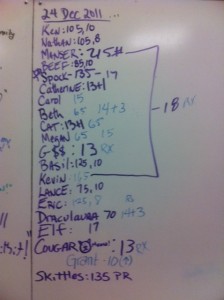 24 Dec 2011
Ken: 105, 10
Nathan: 105, 8
MANSER: 215#
BEEF: 85, 10
Spock - 135 - 17
Catherine: 13+1
Carol 15
Beth 65 14+3
CAT: 13+1 65
MEGAN 65 15
G$$: 13 RX
BASIL: 125, 10
Kevin 165
LANCE: 75, 10
ERIC: 155, 8
Draculaura 70 14+3
Elf: 17
COUGAR 13 RX
Grant - 10
Skittles: 135 PR
18 RX